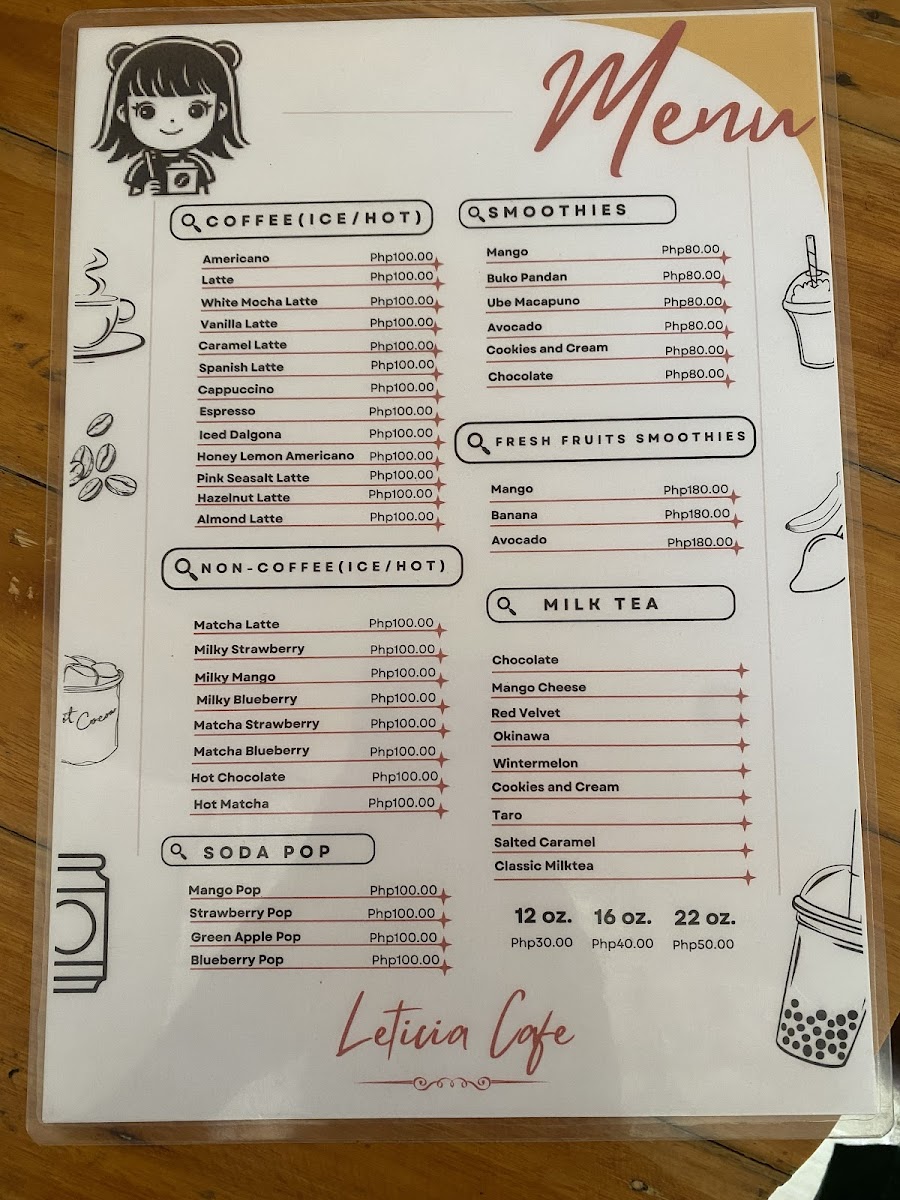 Menu
COFFEE(ICE/HOT)
Americano Php100.00
Latte Php100.00
White Mocha Latte Php100.00
Vanilla Latte Php100.00
Caramel Latte Php100.00
Spanish Latte Php100.00
Cappuccino Php100.00
Espresso Php100.00
Iced Dalgona Php100.00
Honey Lemon Americano Php100.00
Pink Seasalt Latte Php100.00
Hazelnut Latte Php100.00
Almond Latte Php100.00
NON-COFFEE(ICE/HOT)
Matcha Latte Php100.00
Milky Strawberry Php100.00
Milky Mango Php100.00
Milky Blueberry Php100.00
Matcha Strawberry Php100.00
Matcha Blueberry Php100.00
Hot Chocolate Php100.00
Hot Matcha Php100.00
SODA POP
Mango Pop Php100.00
Strawberry Pop Php100.00
Green Apple Pop Php100.00
Blueberry Pop Php100.00
SMOOTHIES
Mango Php80.00
Buko Pandan Php80.00
Ube Macapuno Php80.00
Avocado Php80.00
Cookies and Cream Php80.00
Chocolate Php80.00
FRESH FRUITS SMOOTHIES
Mango Php180.00
Banana Php180.00
Avocado Php180.00
MILK TEA
Chocolate
Mango Cheese
Red Velvet
Okinawa
Wintermelon
Cookies and Cream
Taro
Salted Caramel
Classic Milktea
12 oz. 16 oz. 22 oz.
Php30.00 Php40.00 Php50.00
t Cocoa
Leticia Cafe